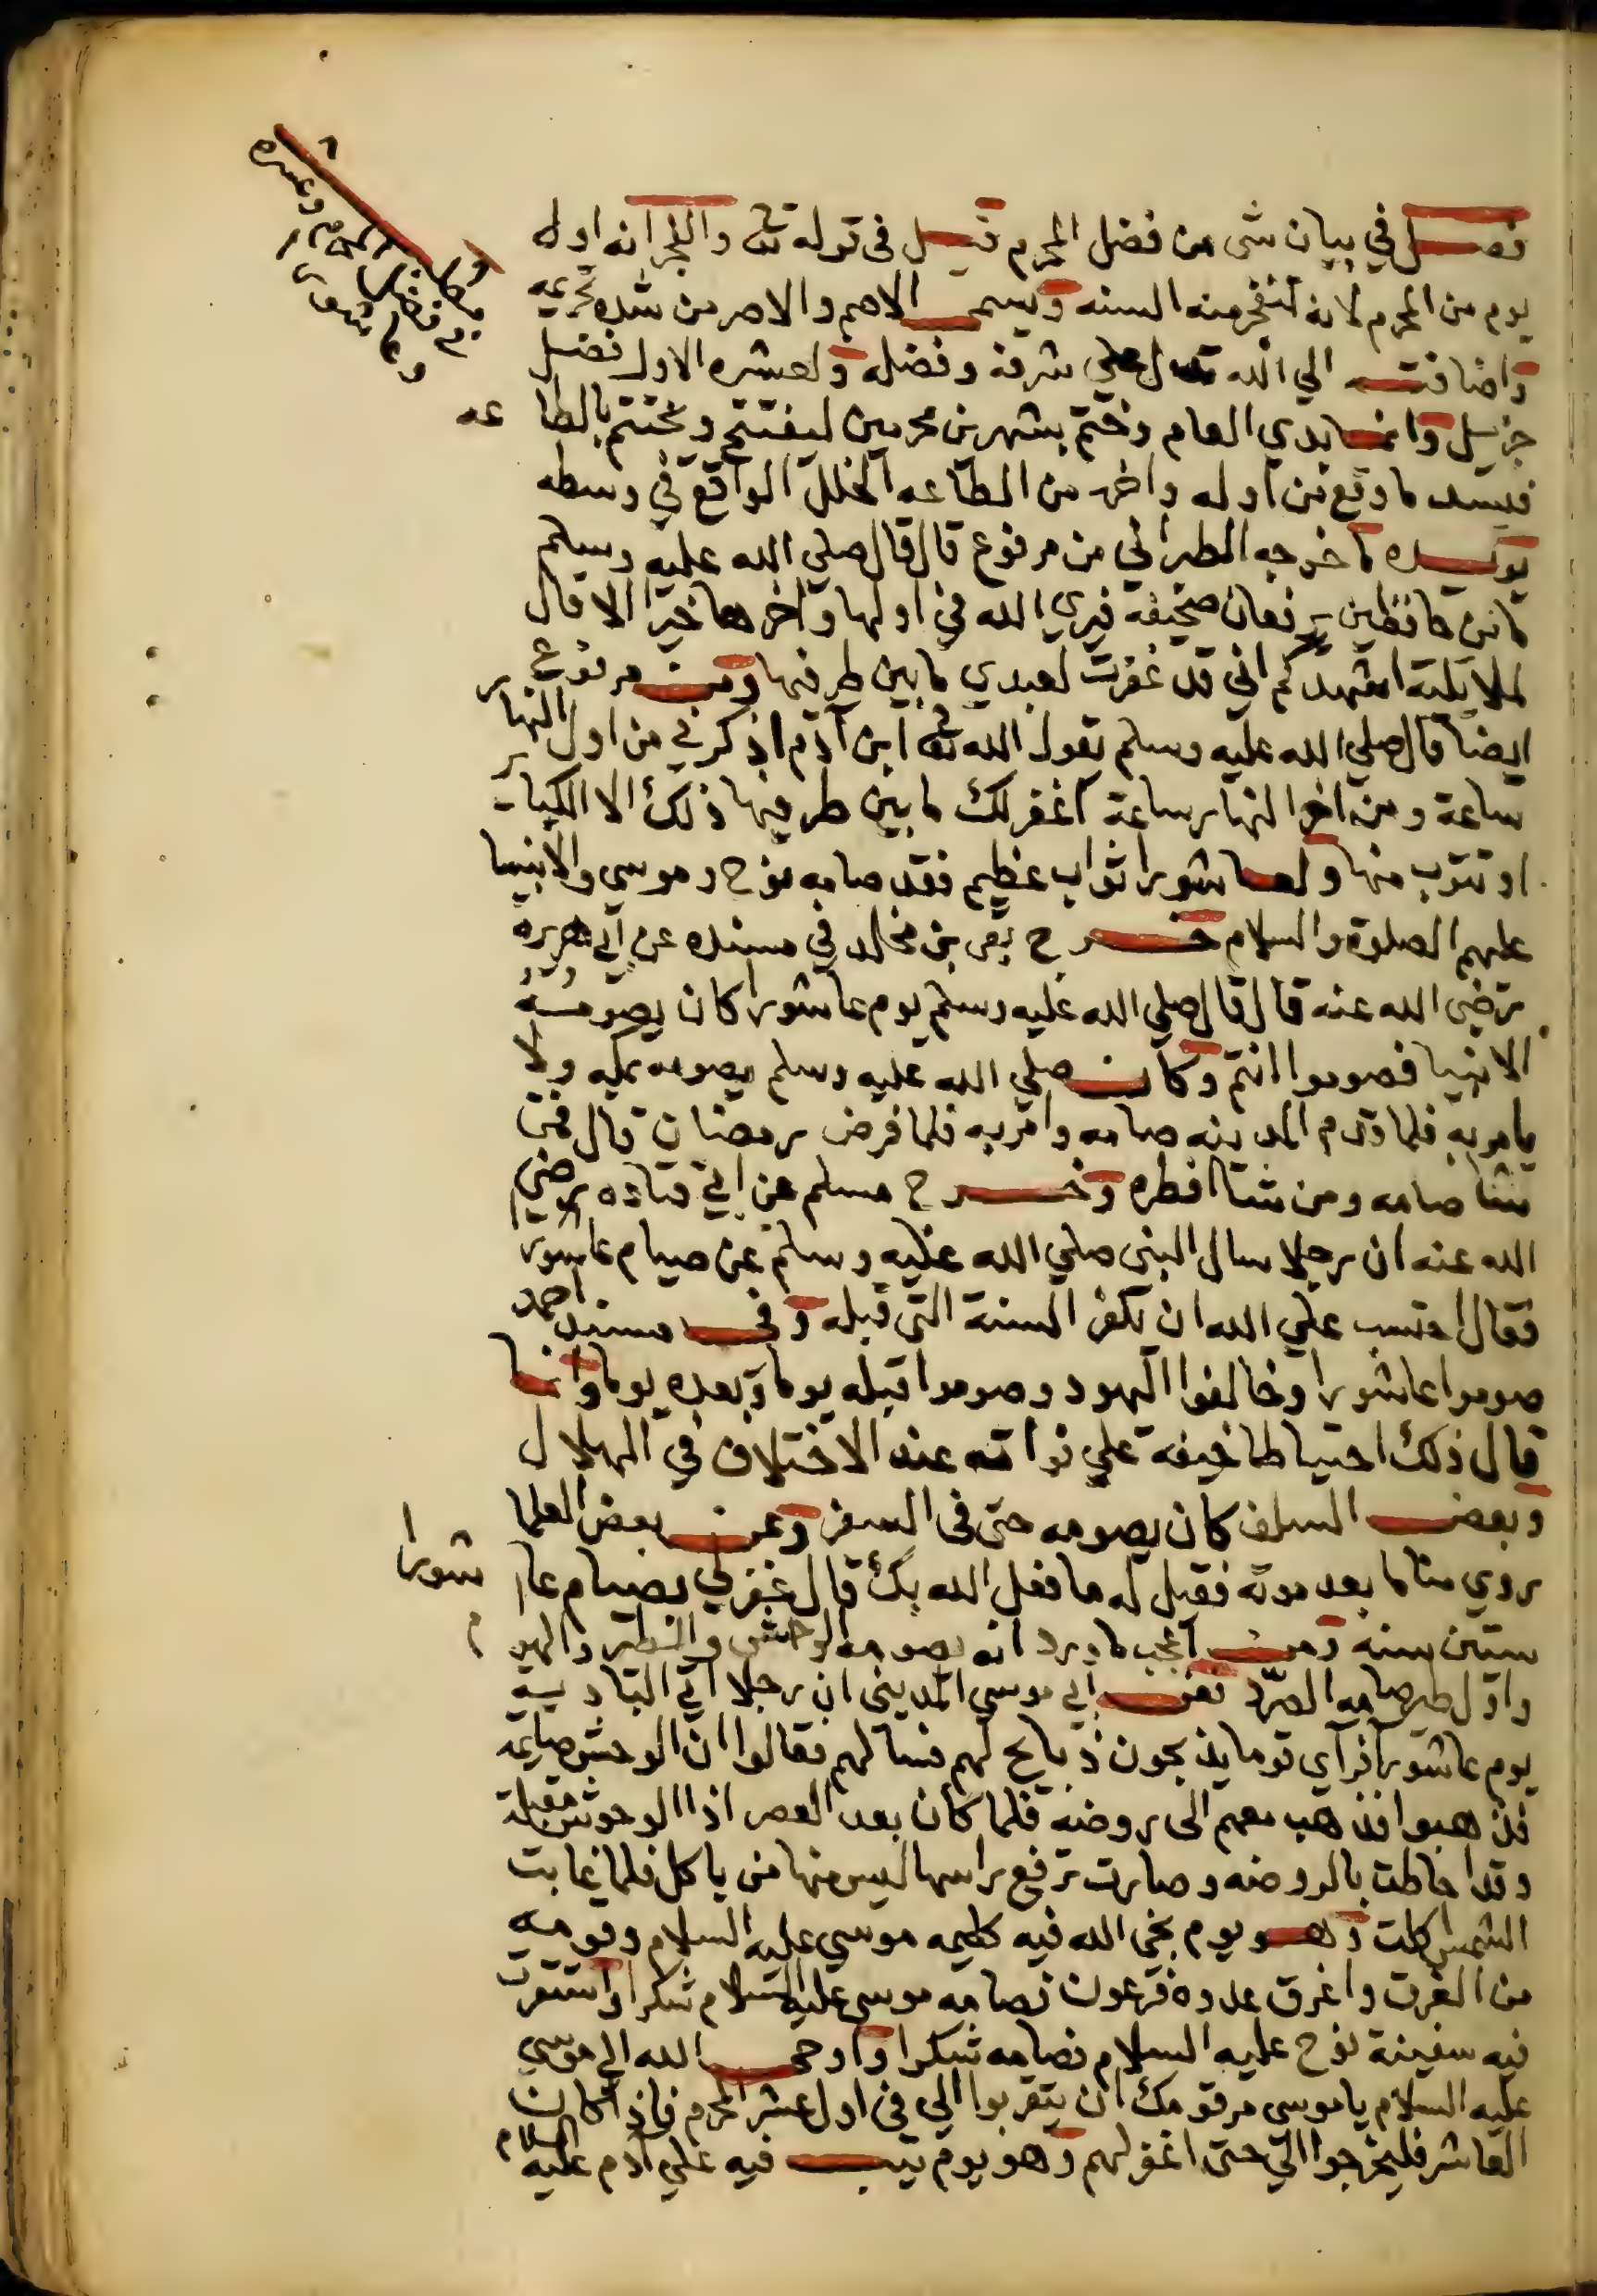 فصل في بيان شي من فضل المحرم قيل في قوله تع والفجر انه اول
يوم من المحرم لانه تنفجر منه السنه ويسمى الاصم والاصر من شده تحريمه
واضافته الي الله تدل علي شرفه وفضله ولعشره الاول فضل
جزيل وانما بدي العام وختم بشهرين محرمين ليفتتح ويختتم بالطاعه
فيسد ما وقع من اوله واخره من الطاعه الخلل الواقع في وسطه
يويده ما خرجه الطبراني من مرفوع قال قال صلي الله عليه وسلم
ما من حافظين يرفعان صحيفة فيري الله في اولها واخرها خيرا الا قال
لملايكته اشهدكم اني قد غفرت لعبدي ما بين طرفيها ومن مرفوع
ايضا قال صلي الله عليه وسلم يقول الله تع ابن آدم اذكرني من اول النهار
ساعة ومن اخر النهار ساعة اغفر لك ما بين طرفيها ذلك الا الكباير
او تتوب منها ولعاشورا ثواب عظيم فقد صامه نوح وموسي والانبيا
عليهم الصلوة والسلام خرج بقي بن مخلد في مسنده عن ابي هريرة
رضي الله عنه قال قال صلي الله عليه وسلم يوم عاشورا كان يصومه
الانبيا فصوموا انتم وكان صلي الله عليه وسلم يصومه بمكه ولا
يامر به فلما قدم المدينه صامه وامر به فلما فرض رمضان قال فمن
شا صامه ومن شا افطره وخرج مسلم عن ابي قتاده رضي
الله عنه ان رجلا سال النبي صلي الله عليه وسلم عن صيام عاشورا
فقال احتسب علي الله ان يكفر السنة التي قبله وفي مسند احمد
صوموا عاشورا وخالفوا اليهود وصوموا قبله يوما وبعده يوما وانما
قال ذلك احتياطا خيفة علي فواته عند الاختلاف في الهلال
وبعض السلف كان يصومه حتى في السفر وعن بعض العلما
روي مناما بعد موته فقيل له ما فعل الله بك قال غفر لي بصيام عاشورا
ستين سنه ومن اعجب ما ورد انه يصومه الوحش والطير والهوام
واول طير صامه الصرد فعن ابي موسي المديني ان رجلا اتي الباديه
يوم عاشورا فرآي قوما يذبحون ذبايح لهم فسالهم فقالوا ان الوحش صايمه
فذهبوا فذهب معهم الى روضه فلما كان بعد العصر اذا الوحوش مقبلة
وقد احاطت بالروضه وصارت ترفع راسها ليس منها من ياكل فلما غابت
الشمس اكلت وهو يوم نجي الله فيه كليمه موسي عليه السلام وقومه
من الغرق واغرق عدوه فرعون فصامه موسي عليه السلام شكرا واستقرت
فيه سفينة نوح عليه السلام فصامه شكرا واوحى الله الي موسي
عليه السلام يا موسى مر قومك ان يتقربوا الي في اول عشر المحرم فاذا كان
العاشر فليخرجوا الي حتى اغفر لهم وهو يوم تيب فيه علي آدم عليه السلام